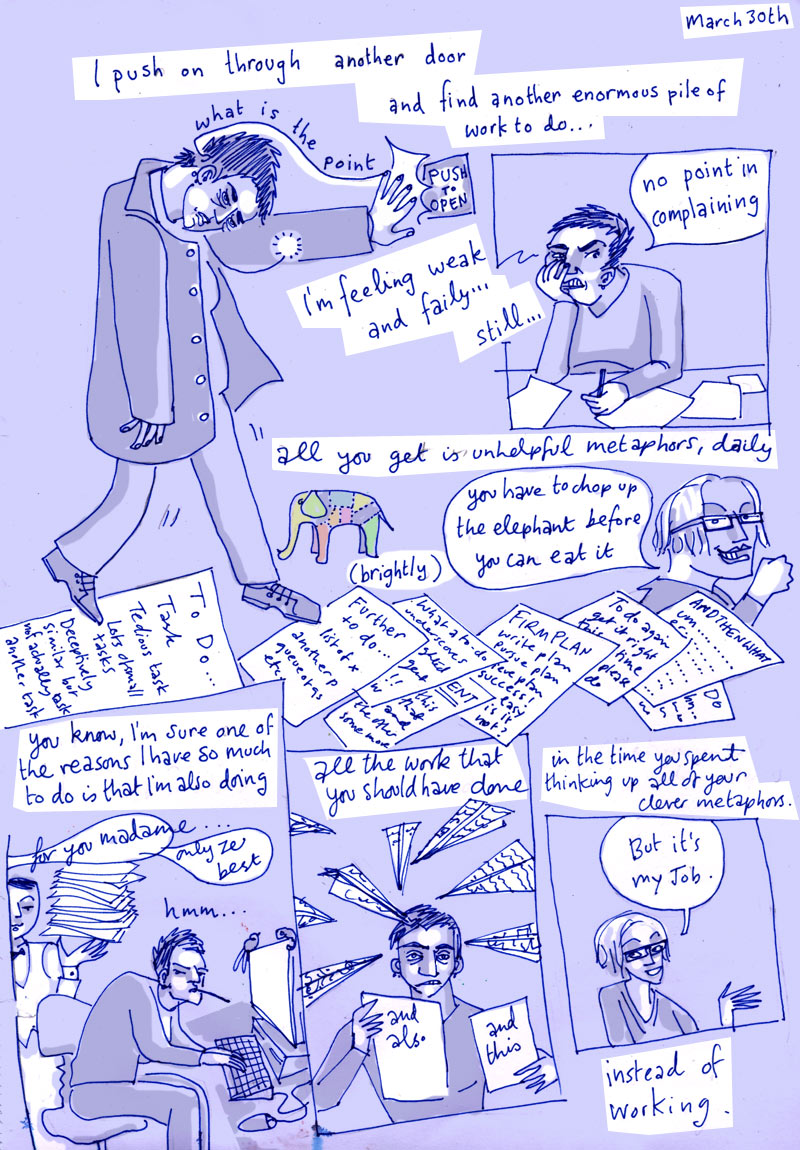 March 30th
I push on through another door
and find another enormous pile of
work to do...
what is the point
PUSH
TO
OPEN
no point in
complaining
I'm feeling weak
and faily...
still...
all you get is unhelpful metaphors, daily
you have to chop up
the elephant before
you can eat it
(brightly)
To Do...
Task
Tedious task
Lots of small
tasks
Deceptively
similar but
not actually task
another task
Further
to do...
list of x
another p
queue of qs
etc
what a to do
underscores
!!
this
and
that
the other
some more
ENT
FIRM PLAN
write plan
pursue plan
love plan
success!
easy
is it
not?
To do again
get it right
this time
please
do
AND THEN WHAT
um...
er..
Do
you know, I'm sure one of
the reasons I have so much
to do is that I'm also doing
for you madame....
only ze
best
hmm...
all the work that
you should have done
and
also
and
this
in the time you spent
thinking up all of your
clever metaphors.
But it's
my Job.
instead of
working.